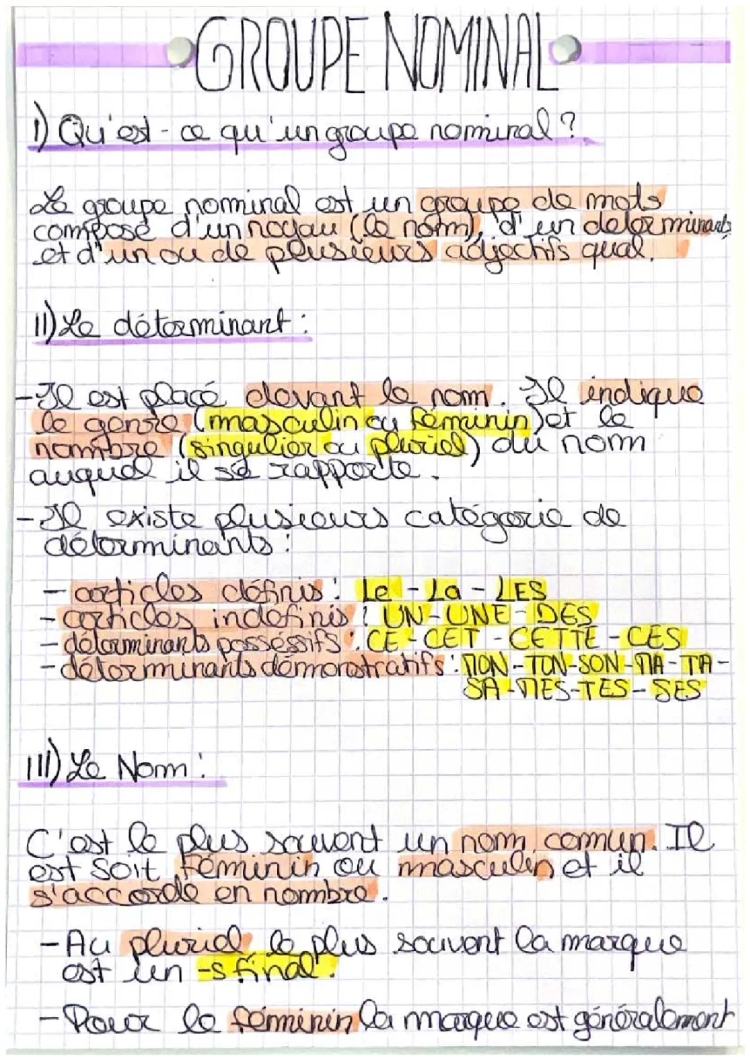 GROUPE NOMINAL
I) Qu'est-ce qu'un groupe nominal ?
Le groupe nominal est un groupe de mots
composé d'un noyau (le nom), d'un déterminant
et d'un ou de plusieurs adjectifs qual.
II) Le déterminant :
- Il est placé devant le nom. Il indique
le genre (masculin ou féminin) et le
nombre (singulier ou pluriel) du nom
auquel il se rapporte.
- Il existe plusieurs catégorie de
déterminants :
- articles définis : Le - La - LES
- articles indéfinis : UN - UNE - DES
- déterminants posséssifs : CE - CET - CETTE - CES
- déterminants démonstratifs : MON - TON - SON - MA - TA -
SA - MES - TES - SES
III) Le Nom :
C'est le plus souvent un nom comun. Il
est soit féminin ou masculin et il
s'accorde en nombre.
- Au pluriel le plus souvent la marque
est un -s final.
- Pour le féminin la marque est généralement